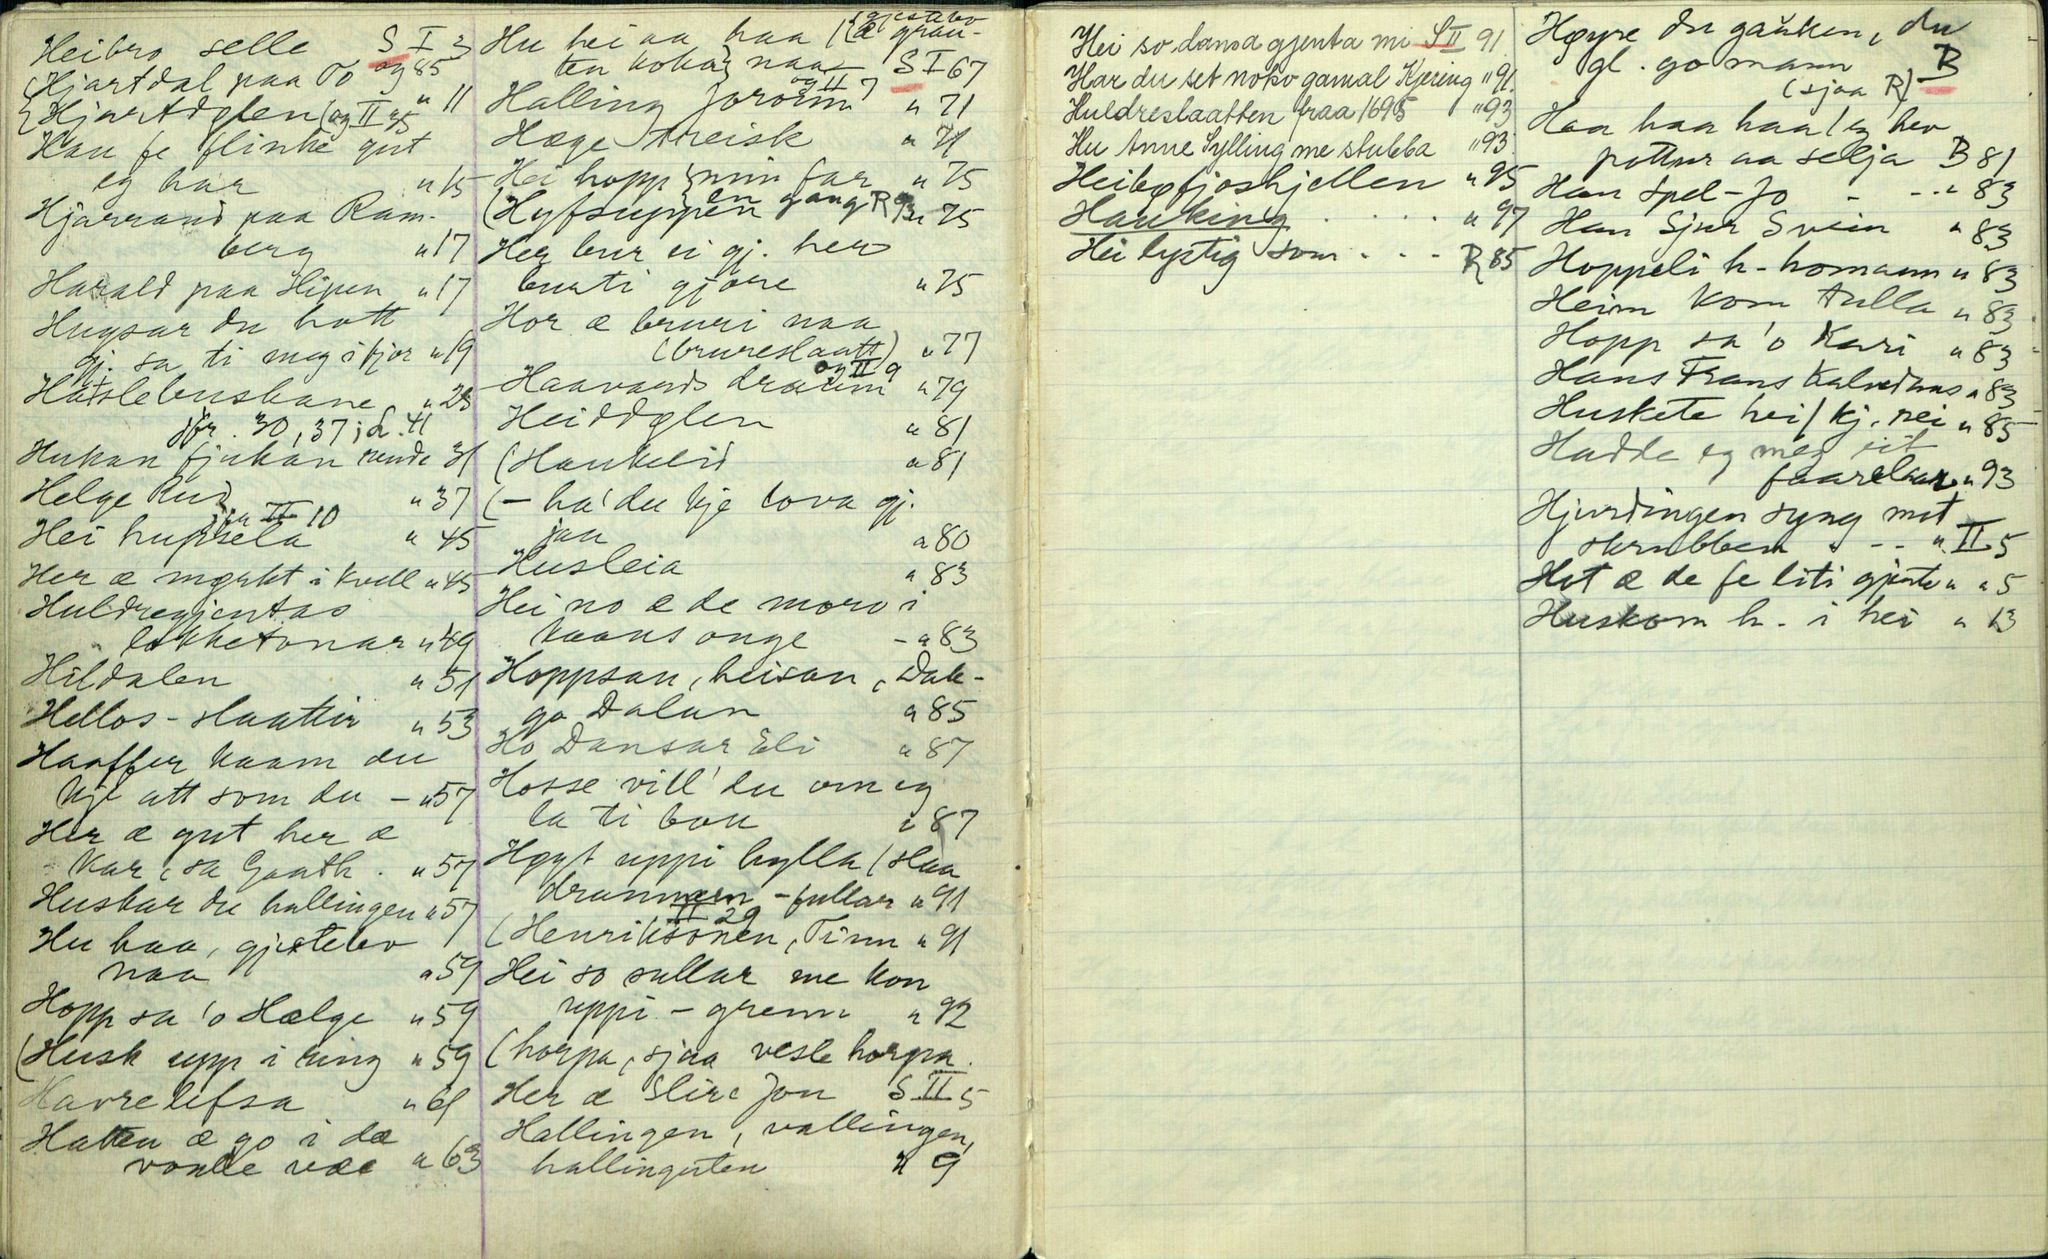 Heibro selle S I 3
Hjartdal paa To og 85
Hjartdølen (og II 45 " 11
Han fe flinke gut
eg har " 15
Hjarrand paa Ram-
berg " 17
Harald paa Hipen " 17
Hugsar du hott
gj. sa ti meg i fjor " 19
Hatslebuskane " 23
jfr. 30, 37; d. 41
Hukan fjukan rende 31
Helge Rud " 37
jfr II 10
Hei hupsela " 45
Her æ mørkt i kvell " 45
Huldregjentas
lokketonar " 49
Hildalen " 51
Hellos-slaatten " 53
Haaffer kaam du
kje att som du - " 57
Her æ gut her æ
kar, sa Gauth. " 57
Huskar du hallingen " 57
Hu haa, gjestebo
naa " 59
Hopp sa 'o Hælge " 59
(Husk upp i ring " 59
Havrelefsa " 61
Hatten æ go i dæ
vonde veæ " 63
Hu hei aa haa ( gjestebo
(æ grau-
ten koka) naa S I 67
og II 7
Halling Joronn " 71
Hæge treisk " 71
Hei hopp min far " 75
en gang R 93
(Hyfsuppen " 75
Her bur ei gj. her
burti gjore " 75
Hor æ bruri naa
(brureslaatt) " 77
og II 9
Haavards draum " 79
Heiddølen " 81
(Haukelid " 81
(- ha' du kje lova gj.
jaa " 80
Husleia " 83
Hei no æ de moro i
kaans onge - " 83
Hoppsan, heisan, Dale-
go Dalan " 85
Ho Dansar Eli " 87
Hosse vill' du om eg
la ti bon " 87
Høgt uppi hylla (Haa
drammen - fullar " 91
II 29
(Henriksonen, Tinn " 91
Hei so sullar me kon
uppi - grenn " 92
(horpa, sjaa vesle horpa.
Her æ Slire Jon S II 5
Hallingen, vallingen,
hallinguten " 9
Hei so dansa gjenta mi S II 91
Har du set noko gamal Kjering " 91
Huldreslaatten fraa 1695 " 93
Hu Anne Sylling me stubba " 93
Heibøfjoshjellen " 95
Hauking . . . . . " 97
Hei lystig som . . . R 85
Høyre du gauken, du
gl. go mann B
(sjaa R)
Haa haa haa! eg hev
pottur aa selja B 81
Han Spel-Jo - - " 83
Han Sjur Svein " 83
Hoppeli h-homann " 83
Heim kom tulla " 83
Hopp sa 'o Kari " 83
Hans Frans Kalvedans " 83
Huskete hei/kj. nei " 85
Hadde eg meg eit
faarelaar " 93
Hjuringen syng mot
skrubben . - - " II 5
Hot æ de fe liti gjente " " 5
Huskom h. i hei " 13